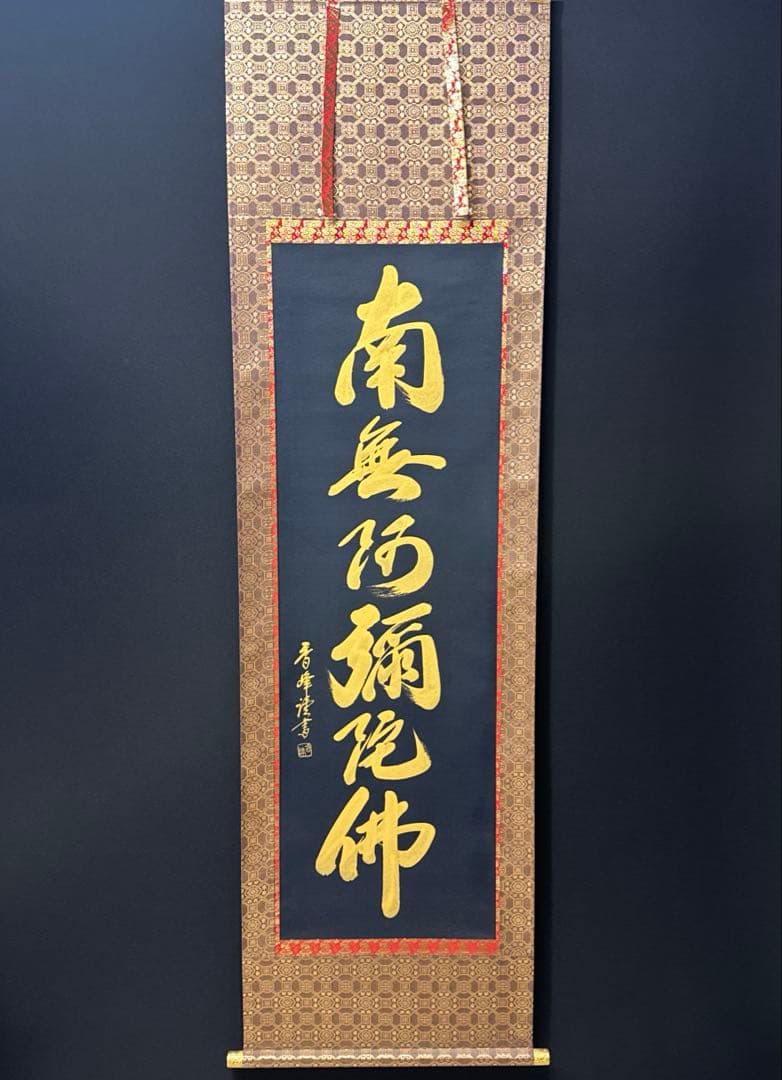 南無阿彌陀佛
香峰謹書